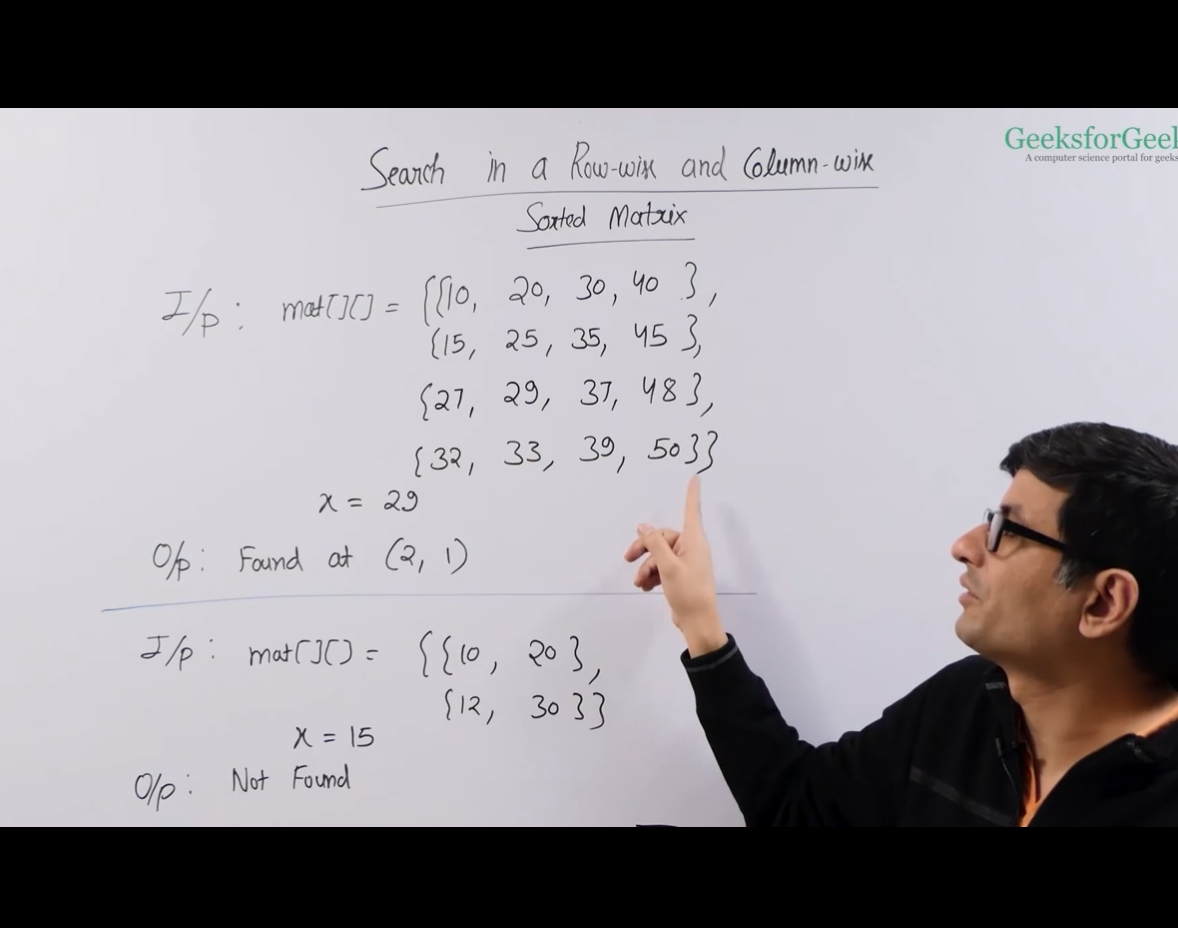 GeeksforGeek
A computer science portal for geeks
Search in a Row-wise and Column-wise
Sorted Matrix
I/p: mat[][] = {{10, 20, 30, 40 },
{15, 25, 35, 45 },
{27, 29, 37, 48},
{32, 33, 39, 50}}
x = 29
O/p: Found at (2, 1)
I/p: mat[][] = {{10, 20},
{12, 30}}
x = 15
O/p: Not Found